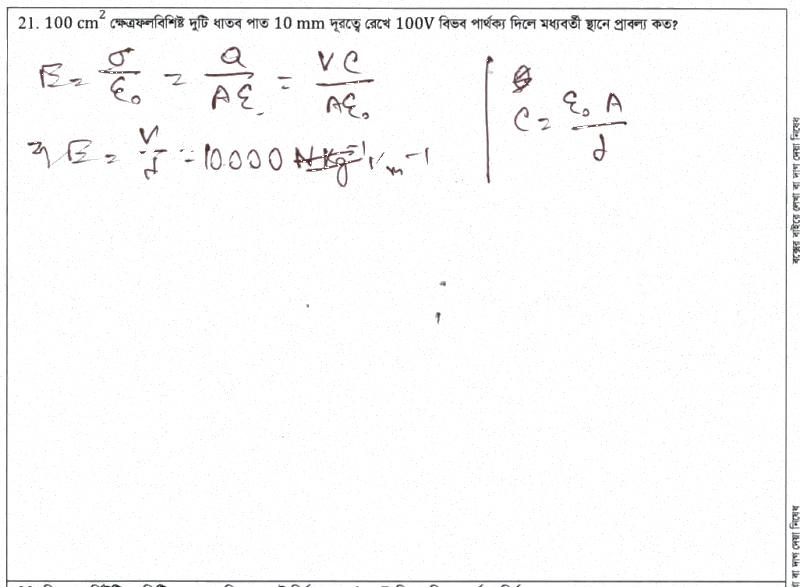 21. 100 cm² ক্ষেত্রফলবিশিষ্ট দুটি ধাতব পাত 10 mm দূরত্বে রেখে 100V বিভব পার্থক্য দিলে মধ্যবর্তী স্থানে প্রাবল্য কত?
E = σ/ε₀ = Q/Aε = VC/Aε₀
C = ε₀ A/d
E = V/d = 10000 Vm⁻¹
বক্সের বাইরে লেখা বা দাগ দেয়া নিষেধ
বা দাগ দেয়া নিষেধ